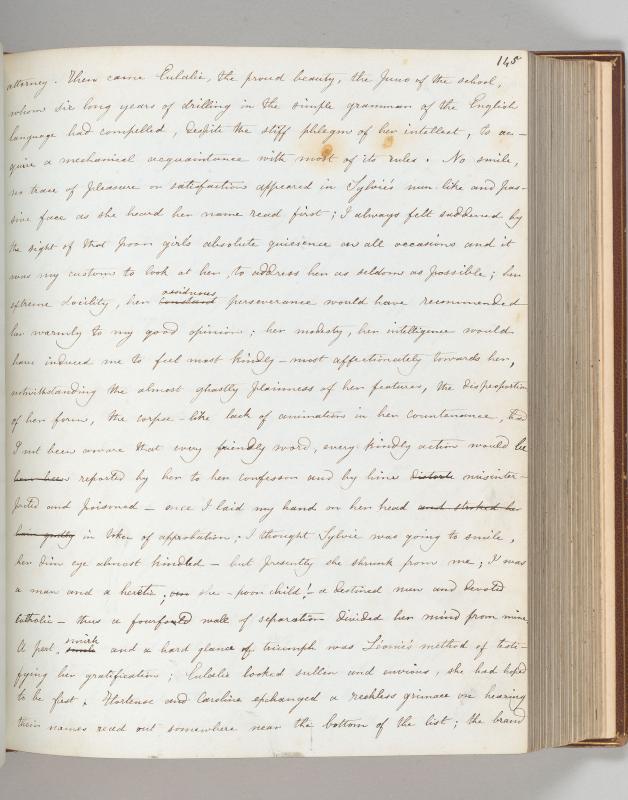 145
attorney. Then came Eulalie, the proud beauty, the Juno of the school,
whom six long years of drilling in the simple grammar of the English
language had compelled, despite the stiff phlegm of her intellect, to ac-
quire a mechanical acquaintance with most of its rules. No smile,
no trace of pleasure or satisfaction appeared in Sylvie's nun-like and pas-
sive face as she heard her name read first; I always felt saddened by
the sight of that poor girl's absolute quiescence on all occasions and it
was my custom to look at her, to address her as seldom as possible; her
assiduous
extreme docility, her constant perseverance would have recommended
her warmly to my good opinion; her modesty, her intelligence would
have induced me to feel most kindly - most affectionately towards her,
notwithstanding the almost ghastly plainness of her features, the disproportion
of her form, the corpse-like lack of animation in her countenance, had
I not been aware that every friendly word, every kindly action would be
have been reported by her to her confessor and by him distorte misinter-
preted and poisoned - once I laid my hand on her head and stroked her
hair gently in token of approbation; I thought Sylvie was going to smile,
her dim eye almost kindled - but presently she shrunk from me; I was
a man and a heretic; she - poor child! - a destined nun and devoted
Catholic - thus a fourfold wall of separation divided her mind from mine.
smirk
A pert smile and a hard glance of triumph was Léonie's method of testi-
fying her gratification; Eulalie looked sullen and envious, she had hoped
to be first. Hortense and Caroline exchanged a reckless grimace on hearing
their names read out somewhere near the bottom of the list; the brand